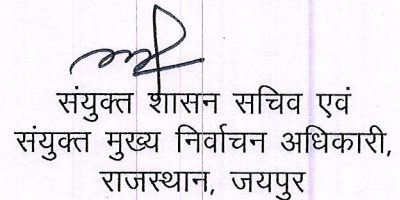 संयुक्त शासन सचिव एवं
संयुक्त मुख्य निर्वाचन अधिकारी,
राजस्थान, जयपुर